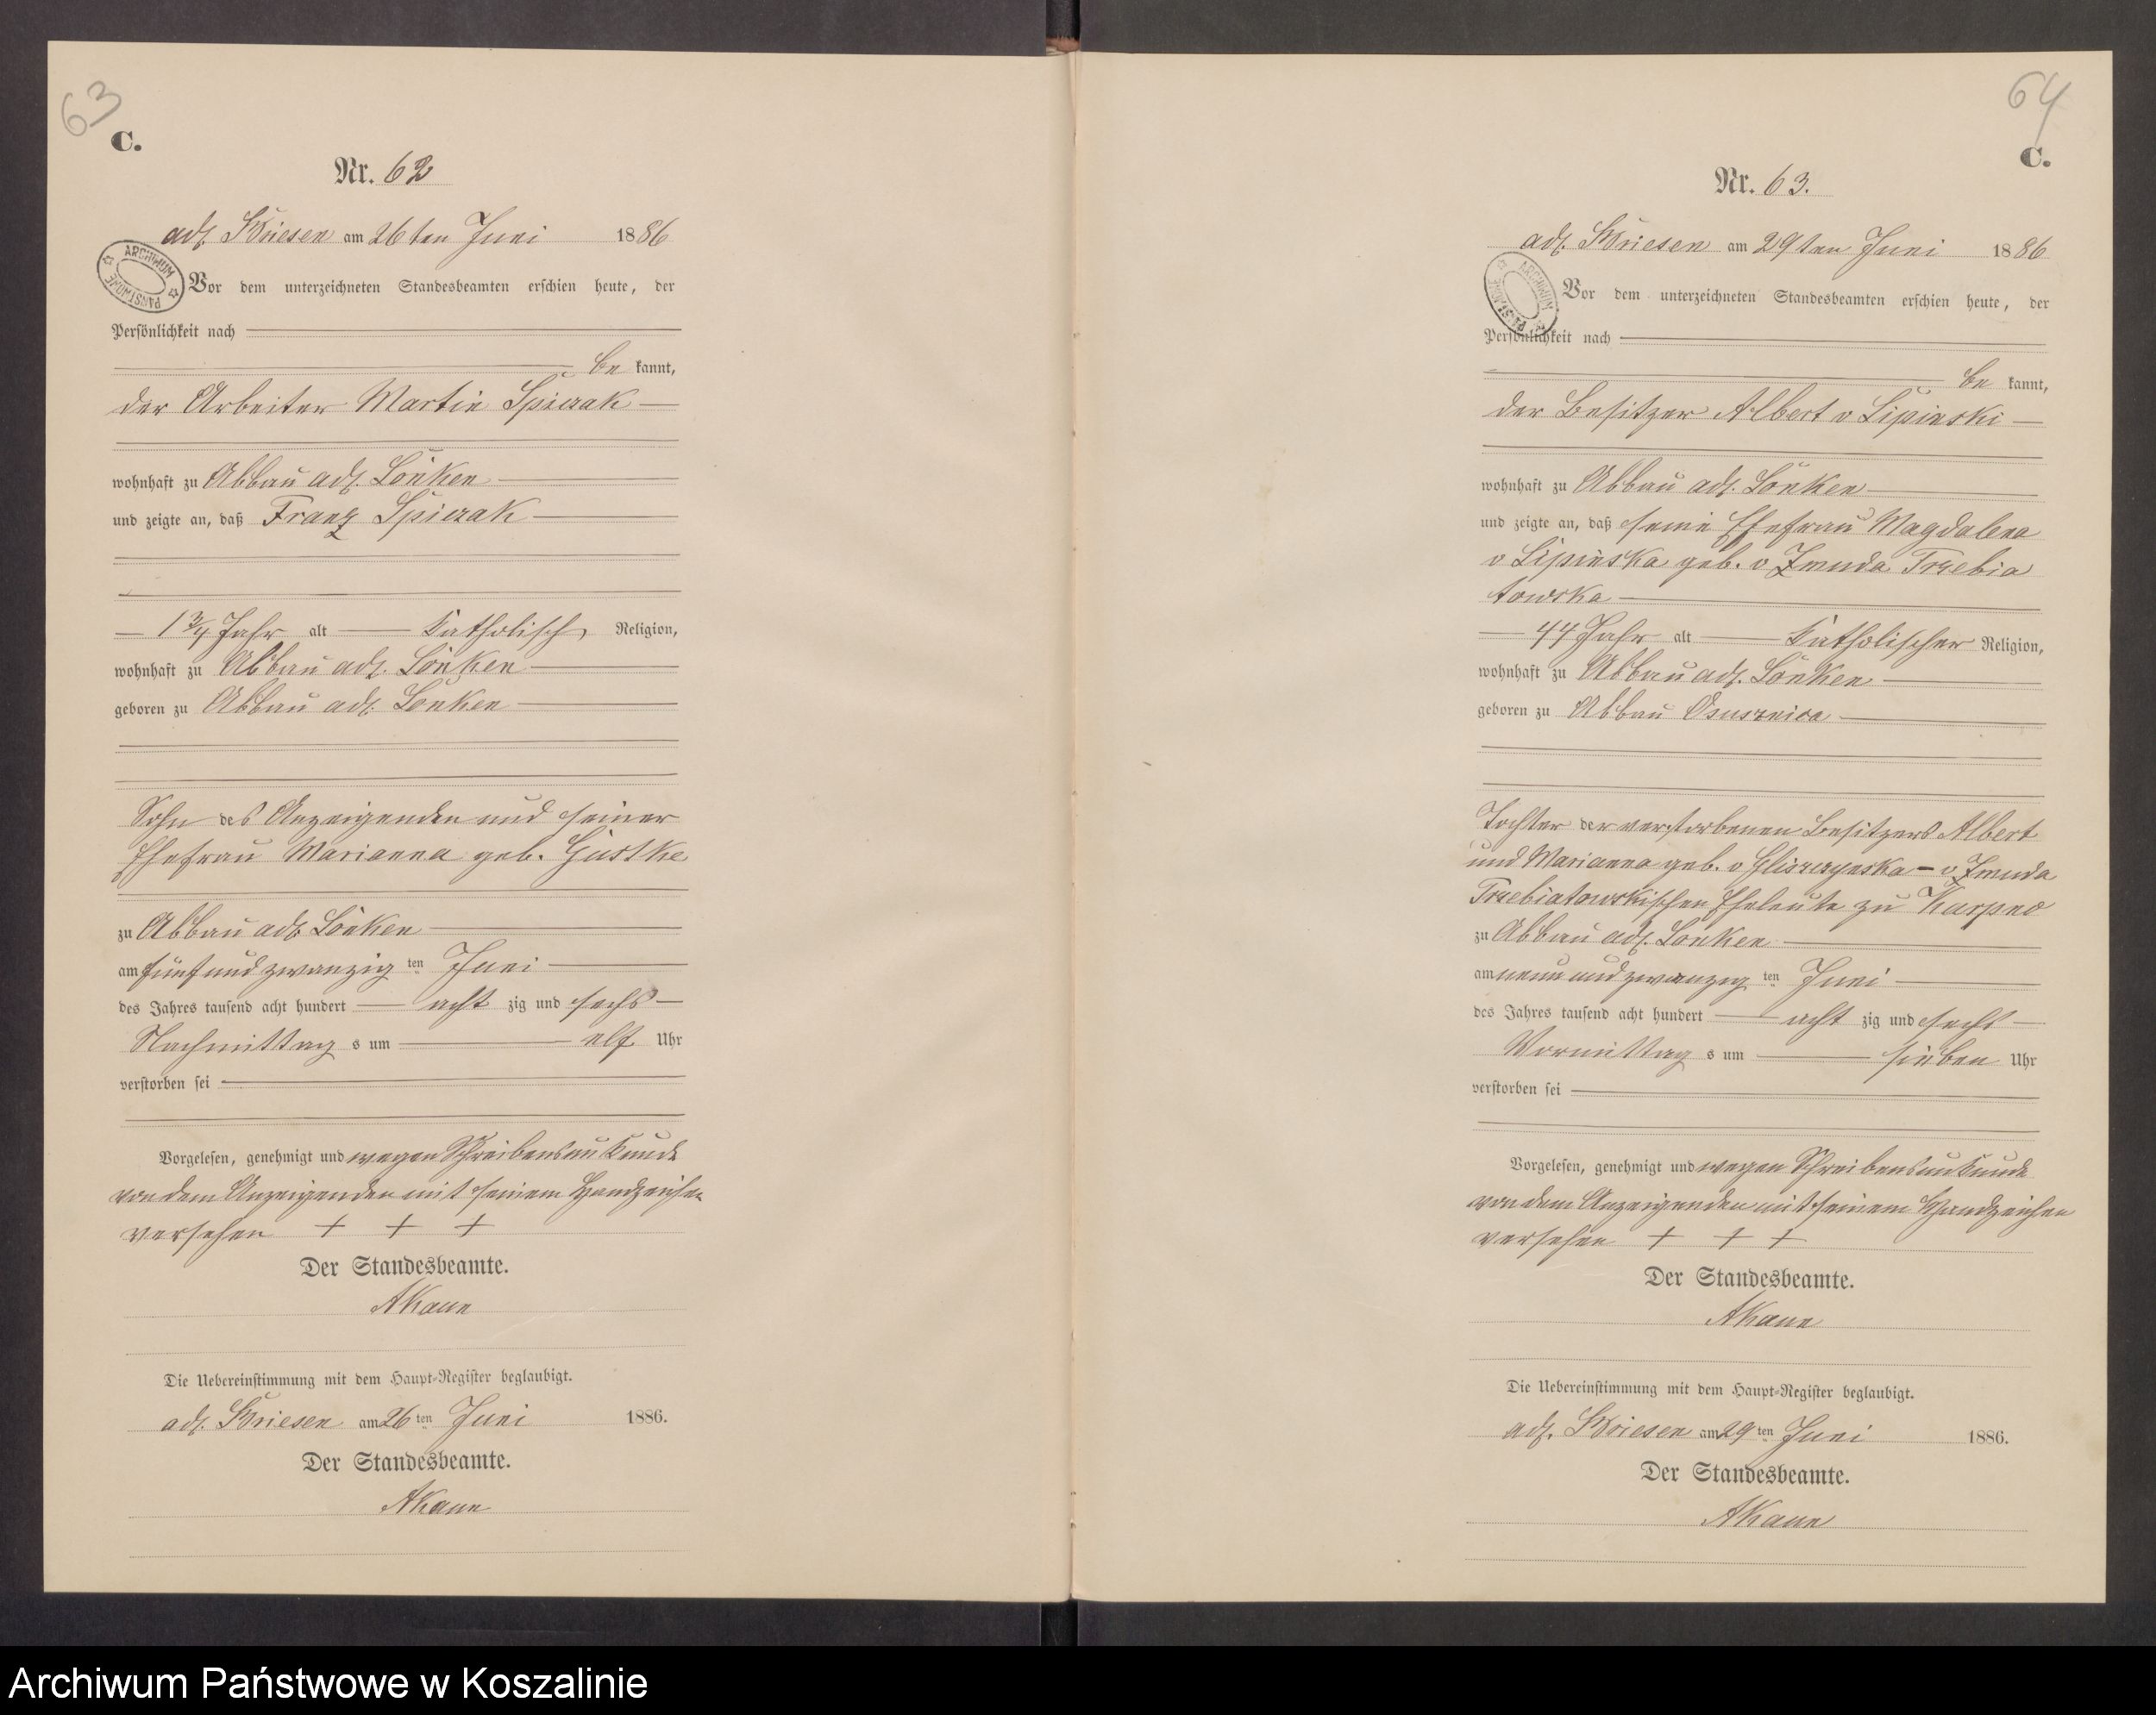 63
C.
Nr. 62
adl. Briesen am 26ten Juni 1886
ARCHIWUM PAŃSTWOWE
Vor dem unterzeichneten Standesbeamten erschien heute, der
Persönlichkeit nach
be kannt,
der Arbeiter Martin Spiczak
wohnhaft zu Abbau adl. Lonken
und zeigte an, daß Franz Spiczak
1 3/4 Jahr alt katholisch Religion,
wohnhaft zu Abbau adl. Lonken
geboren zu Abbau adl. Lonken
Sohn des Anzeigenden und seiner
Ehefrau Marianna geb. Gustke
zu Abbau adl. Lonken
am fünf und zwanzig ten Juni
des Jahres tausend acht hundert acht zig und sechs
Nachmittag s um elf Uhr
verstorben sei
Vorgelesen, genehmigt und wegen Schreibensunkunde
von dem Anzeigenden mit seinem Handzeichen
versehen + + +
Der Standesbeamte.
AKaun
Die Uebereinstimmung mit dem Haupt-Register beglaubigt.
adl. Briesen am 26 ten Juni 1886.
Der Standesbeamte.
AKaun
64
C.
Nr. 63.
adl. Briesen am 29ten Juni 1886
ARCHIWUM PAŃSTWOWE
Vor dem unterzeichneten Standesbeamten erschien heute, der
Persönlichkeit nach
be kannt,
der Besitzer Albert v Lipinski
wohnhaft zu Abbau adl. Lonken
und zeigte an, daß seine Ehefrau Magdalena
v Lipinska geb. v Zmuda Trzebia
towska
44 Jahr alt katholischer Religion,
wohnhaft zu Abbau adl. Lonken
geboren zu Abbau Osusznica
Tochter der verstorbenen Besitzers Albert
und Marianna geb. v - v Zmuda
Trzebiatowskischen Eheleute zu Karpno
zu Abbau adl. Lonken
am neun und zwanzig ten Juni
des Jahres tausend acht hundert acht zig und sechs
Vormittag s um sieben Uhr
verstorben sei
Vorgelesen, genehmigt und wegen Schreibensunkunde
von dem Anzeigenden mit seinem Handzeichen
versehen + + +
Der Standesbeamte.
AKaun
Die Uebereinstimmung mit dem Haupt-Register beglaubigt.
adl. Briesen am 29 ten Juni 1886.
Der Standesbeamte.
AKaun
Archiwum Państwowe w Koszalinie